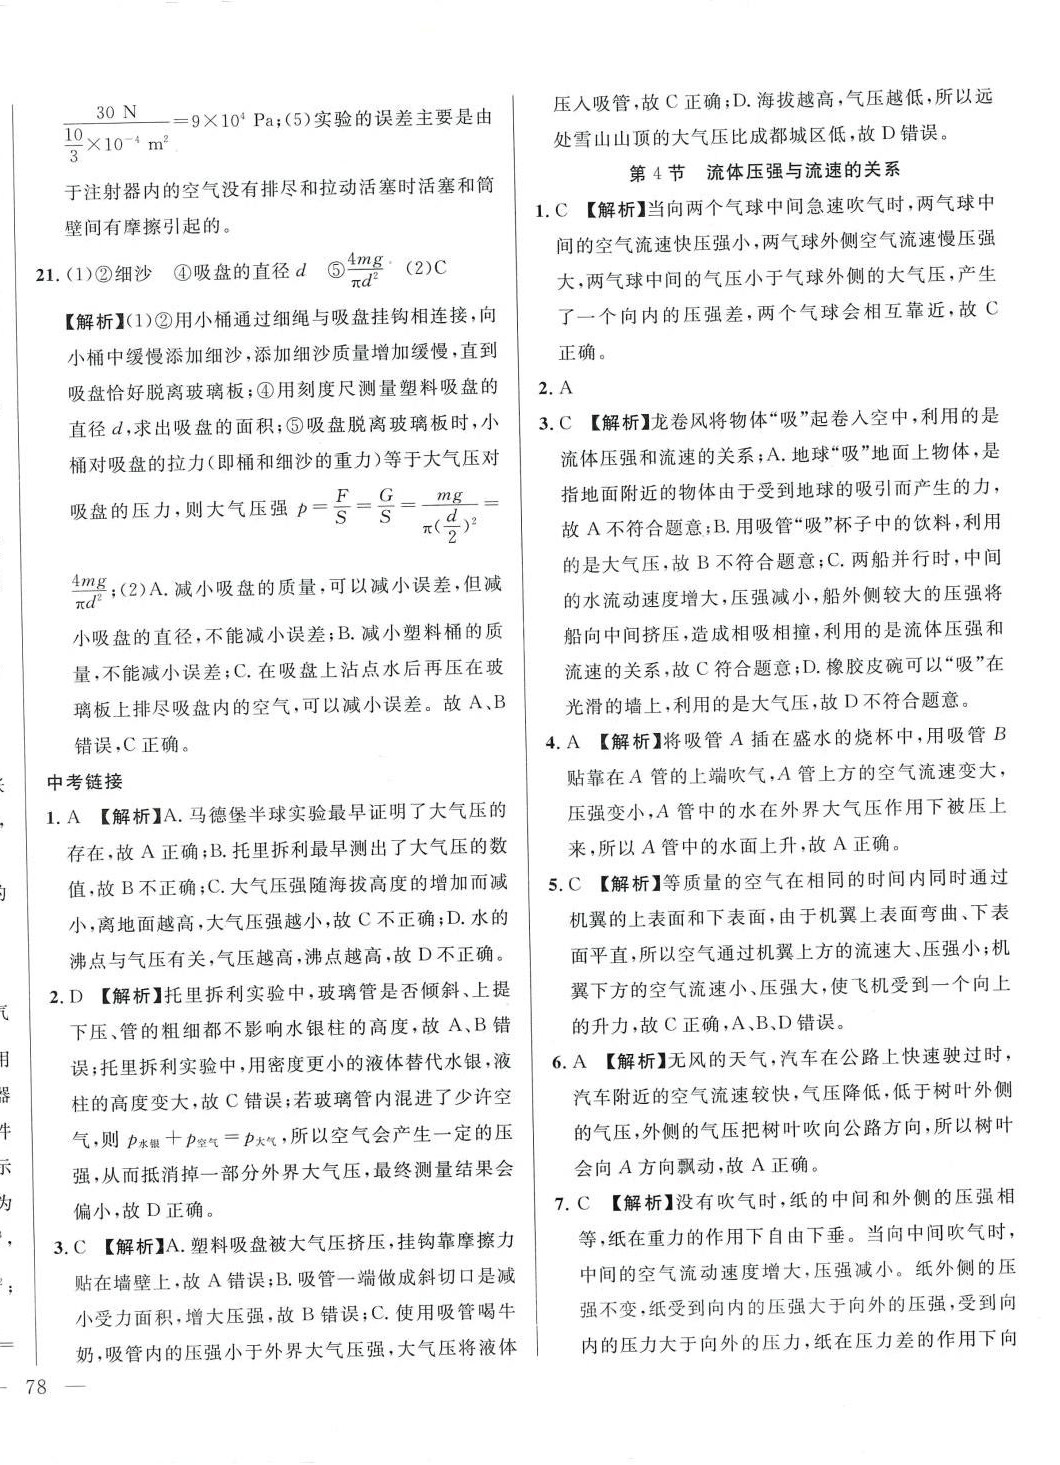 30 N
10/3 ×10⁻⁴ m² =9×10⁴ Pa;(5)实验的误差主要是由
于注射器内的空气没有排尽和拉动活塞时活塞和筒
壁间有摩擦引起的。
21. (1)②细沙 ④吸盘的直径 d ⑤4mg/πd² (2)C
【解析】(1)②用小桶通过细绳与吸盘挂钩相连接,向
小桶中缓慢添加细沙,添加细沙质量增加缓慢,直到
吸盘恰好脱离玻璃板;④用刻度尺测量塑料吸盘的
直径 d,求出吸盘的面积;⑤吸盘脱离玻璃板时,小
桶对吸盘的拉力(即桶和细沙的重力)等于大气压对
吸盘的压力,则大气压强 p=F/S=G/S=mg/π(d/2)²=
4mg/πd²;(2)A. 减小吸盘的质量,可以减小误差,但减
小吸盘的直径,不能减小误差;B. 减小塑料桶的质
量,不能减小误差;C. 在吸盘上沾点水后再压在玻
璃板上排尽吸盘内的空气,可以减小误差。故 A、B
错误,C 正确。
中考链接
1. A 【解析】A. 马德堡半球实验最早证明了大气压的
存在,故 A 正确;B. 托里拆利最早测出了大气压的数
值,故 B 不正确;C. 大气压强随海拔高度的增加而减
小,离地面越高,大气压强越小,故 C 不正确;D. 水的
沸点与气压有关,气压越高,沸点越高,故 D 不正确。
2. D 【解析】托里拆利实验中,玻璃管是否倾斜、上提
下压、管的粗细都不影响水银柱的高度,故 A、B 错
误;托里拆利实验中,用密度更小的液体替代水银,液
柱的高度变大,故 C 错误;若玻璃管内混进了少许空
气,则 p水银+p空气=p大气,所以空气会产生一定的压
强,从而抵消掉一部分外界大气压,最终测量结果会
偏小,故 D 正确。
3. C 【解析】A. 塑料吸盘被大气压挤压,挂钩靠摩擦力
贴在墙壁上,故 A 错误;B. 吸管一端做成斜切口是减
小受力面积,增大压强,故 B 错误;C. 使用吸管喝牛
奶,吸管内的压强小于外界大气压强,大气压将液体
— 78 —
压入吸管,故 C 正确;D. 海拔越高,气压越低,所以远
处雪山山顶的大气压比成都城区低,故 D 错误。
第 4 节 流体压强与流速的关系
1. C 【解析】当向两个气球中间急速吹气时,两气球中
间的空气流速快压强小,两气球外侧空气流速慢压强
大,两气球中间的气压小于气球外侧的大气压,产生
了一个向内的压强差,两个气球会相互靠近,故 C
正确。
2. A
3. C 【解析】龙卷风将物体“吸”起卷入空中,利用的是
流体压强和流速的关系;A. 地球“吸”地面上物体,是
指地面附近的物体由于受到地球的吸引而产生的力,
故 A 不符合题意;B. 用吸管“吸”杯子中的饮料,利用
的是大气压,故 B 不符合题意;C. 两船并行时,中间
的水流动速度增大,压强减小,船外侧较大的压强将
船向中间挤压,造成相吸相撞,利用的是流体压强和
流速的关系,故 C 符合题意;D. 橡胶皮碗可以“吸”在
光滑的墙上,利用的是大气压,故 D 不符合题意。
4. A 【解析】将吸管 A 插在盛水的烧杯中,用吸管 B
贴靠在 A 管的上端吹气,A 管上方的空气流速变大,
压强变小,A 管中的水在外界大气压作用下被压上
来,所以 A 管中的水面上升,故 A 正确。
5. C 【解析】等质量的空气在相同的时间内同时通过
机翼的上表面和下表面,由于机翼上表面弯曲、下表
面平直,所以空气通过机翼上方的流速大、压强小;机
翼下方的空气流速小、压强大,使飞机受到一个向上
的升力,故 C 正确,A、B、D 错误。
6. A 【解析】无风的天气,汽车在公路上快速驶过时,
汽车附近的空气流速较快,气压降低,低于树叶外侧
的气压,外侧的气压把树叶吹向公路方向,所以树叶
会向 A 方向飘动,故 A 正确。
7. C 【解析】没有吹气时,纸的中间和外侧的压强相
等,纸在重力的作用下自由下垂。当向中间吹气时,
中间的空气流动速度增大,压强减小。纸外侧的压
强不变,纸受到向内的压强大于向外的压强,受到向
内的压力大于向外的压力,纸在压力差的作用下向